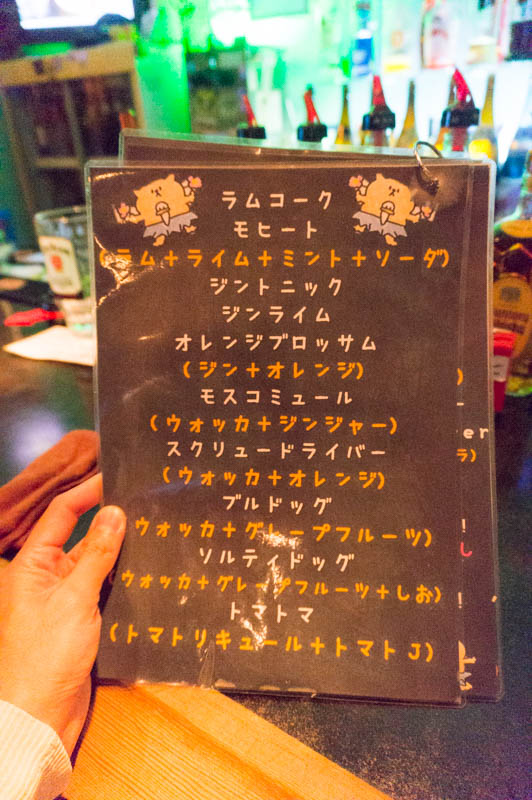 ラムコーク
モヒート
(ラム+ライム+ミント+ソーダ)
ジントニック
ジンライム
オレンジブロッサム
(ジン+オレンジ)
モスコミュール
(ウォッカ+ジンジャー)
スクリュードライバー
(ウォッカ+オレンジ)
ブルドッグ
ウォッカ+グレープフルーツ)
ソルティドッグ
(ウォッカ+グレープフルーツ+しお)
トマトマ
(トマトリキュール+トマトJ)